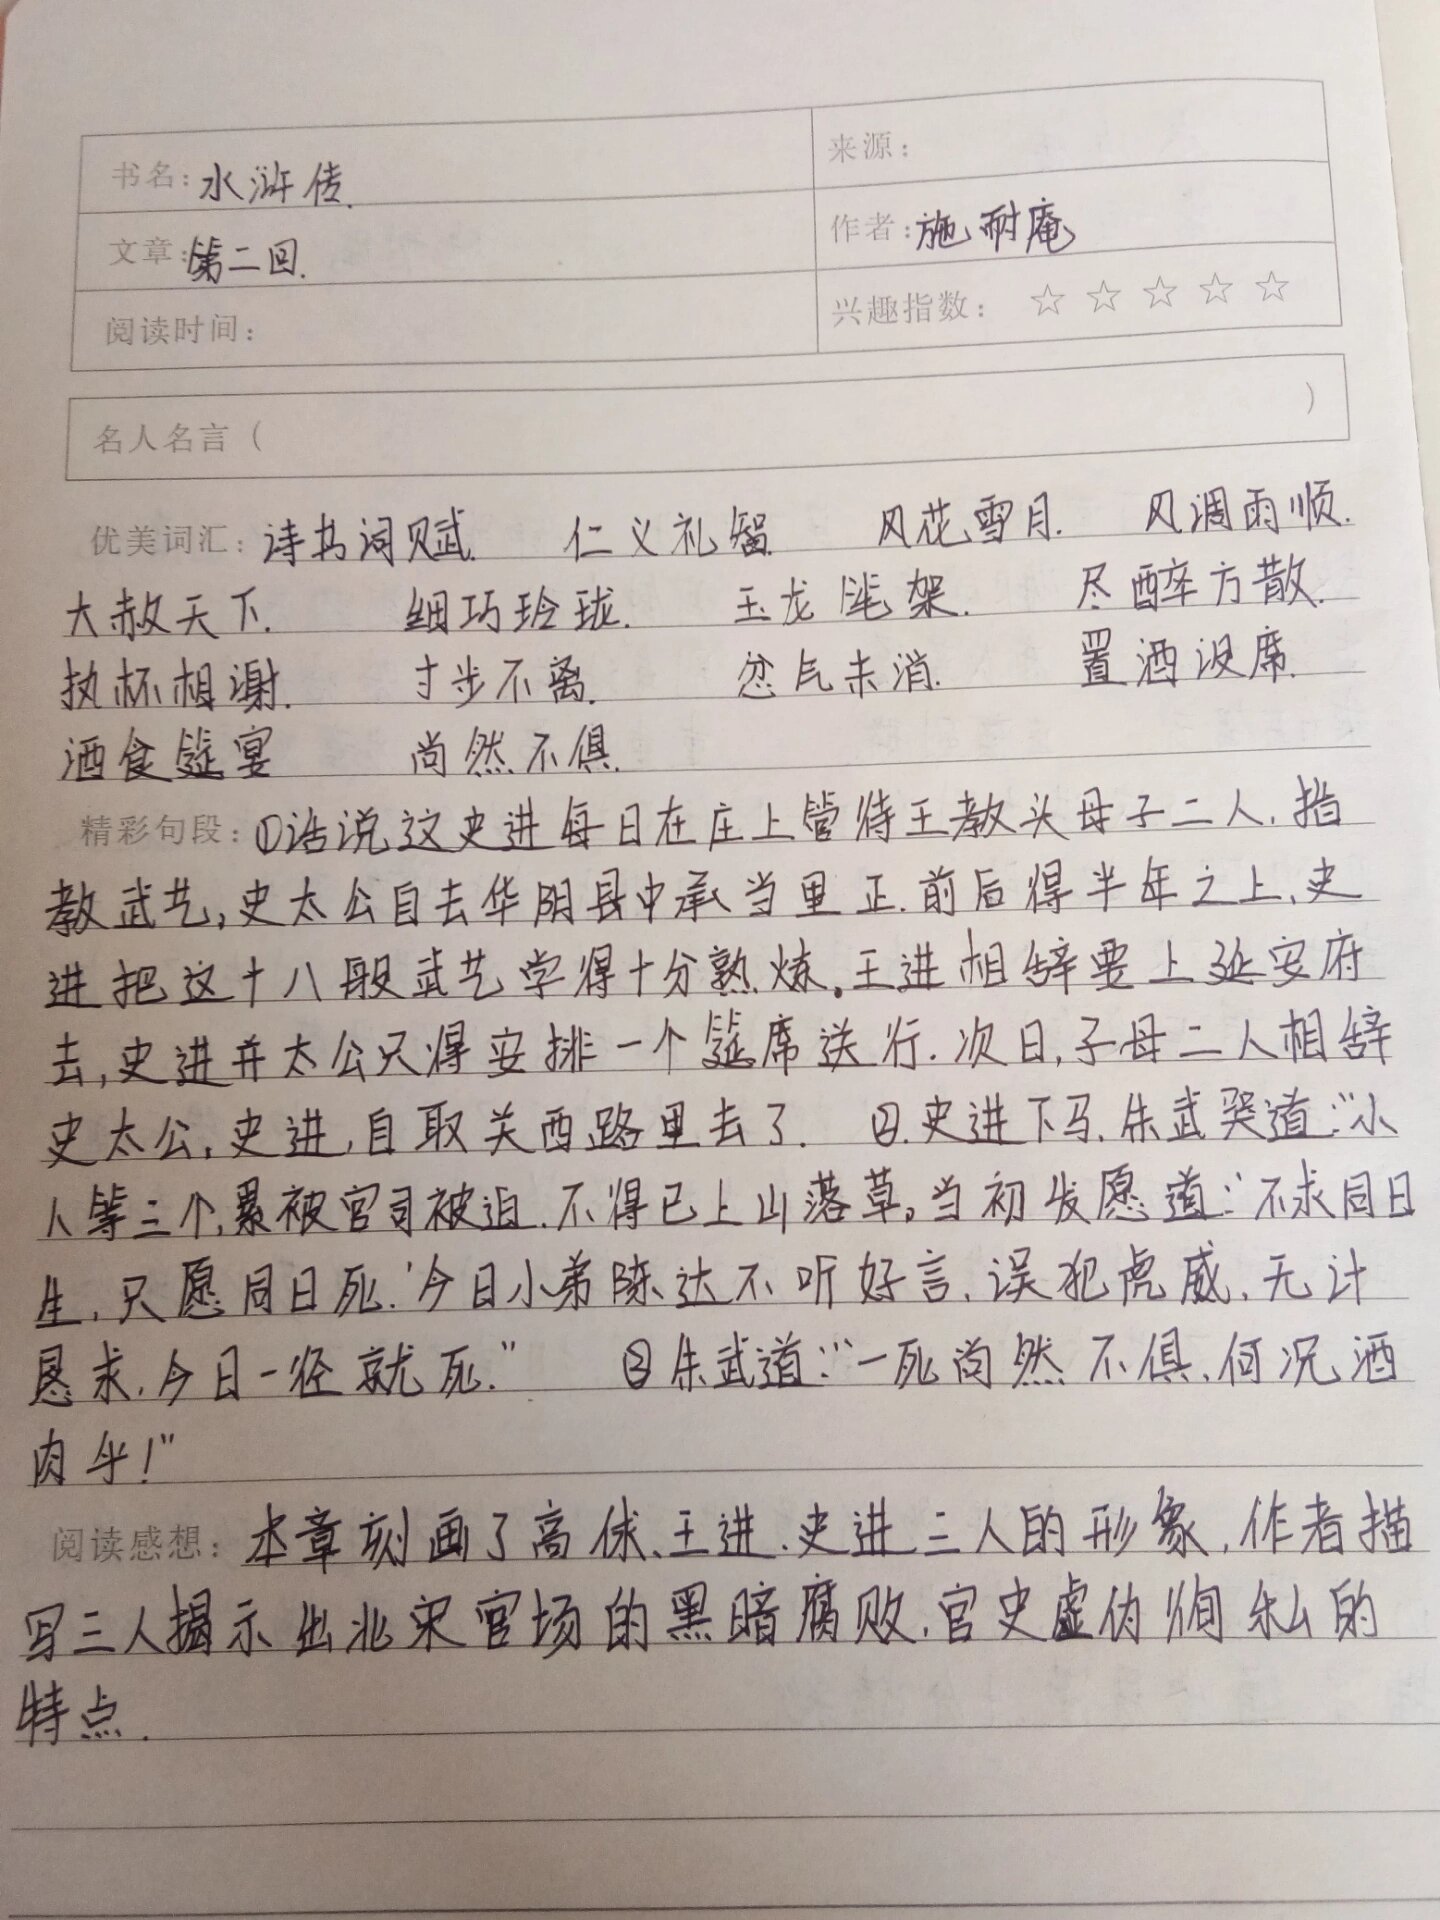 书名：水浒传.
来源：
文章：第二回.
作者：施耐庵
阅读时间：
兴趣指数：☆ ☆ ☆ ☆ ☆
名人名言（ ）
优美词汇：诗书词赋. 仁义礼智. 风花雪月. 风调雨顺.
大赦天下. 细巧玲珑. 玉龙笔架. 尽醉方散.
执杯相谢. 寸步不离. 忿气未消. 置酒设席.
酒食筵宴 尚然不俱.
精彩句段：①话说这史进每日在庄上管待王教头母子二人.指
教武艺,史太公自去华阴县中承当里正.前后得半年之上,史
进把这十八般武艺学得十分熟炼。王进相辞要上延安府
去,史进并太公只得安排一个筵席送行.次日,子母二人相辞
史太公,史进,自取关西路里去了. ②.史进下马,朱武哭道:“小
人等三个,累被官司被迫.不得已上山落草。当初发愿道:‘不求同日
生,只愿同日死.’今日小弟陈达不听好言,误犯虎威,无计
恳求.今日一径就死.” ③朱武道:“一死尚然不俱,何况酒
肉乎!”
阅读感想：本章刻画了高俅、王进、史进三人的形象,作者描
写三人揭示出北宋官场的黑暗腐败,官史虚伪徇私的
特点.